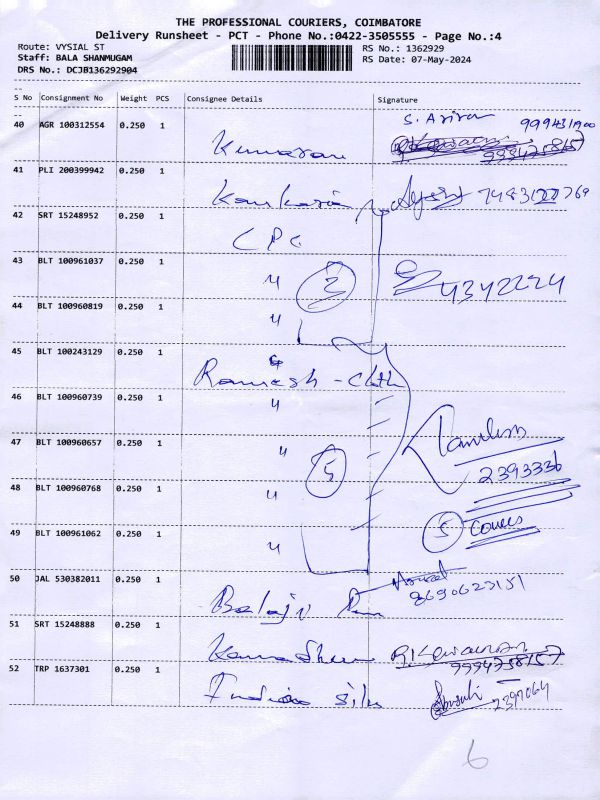 THE PROFESSIONAL COURIERS, COIMBATORE
Delivery Runsheet - PCT - Phone No.:0422-3505555 - Page No.:4
Route: VYSIAL ST RS No.: 1362929
Staff: BALA SHANMUGAM RS Date: 07-May-2024
DRS No.: DCJB136292904
S No Consignment No Weight PCS Consignee Details Signature
40 AGR 100312554 0.250 1 Kumaran
41 PLI 200399942 0.250 1
42 SRT 15248952 0.250 1 CPC
43 BLT 100961037 0.250 1 " 2 4342224
44 BLT 100960819 0.250 1 "
45 BLT 100243129 0.250 1 Ramesh - Cloth
46 BLT 100960739 0.250 1 "
47 BLT 100960657 0.250 1 " 5 2393336
48 BLT 100960768 0.250 1 "
49 BLT 100961062 0.250 1 " 5 Covers
50 JAL 530382011 0.250 1 Balaji 8690623151
51 SRT 15248888 0.250 1 9994758157
52 TRP 1637301 0.250 1 Indian Silk 2397064
6